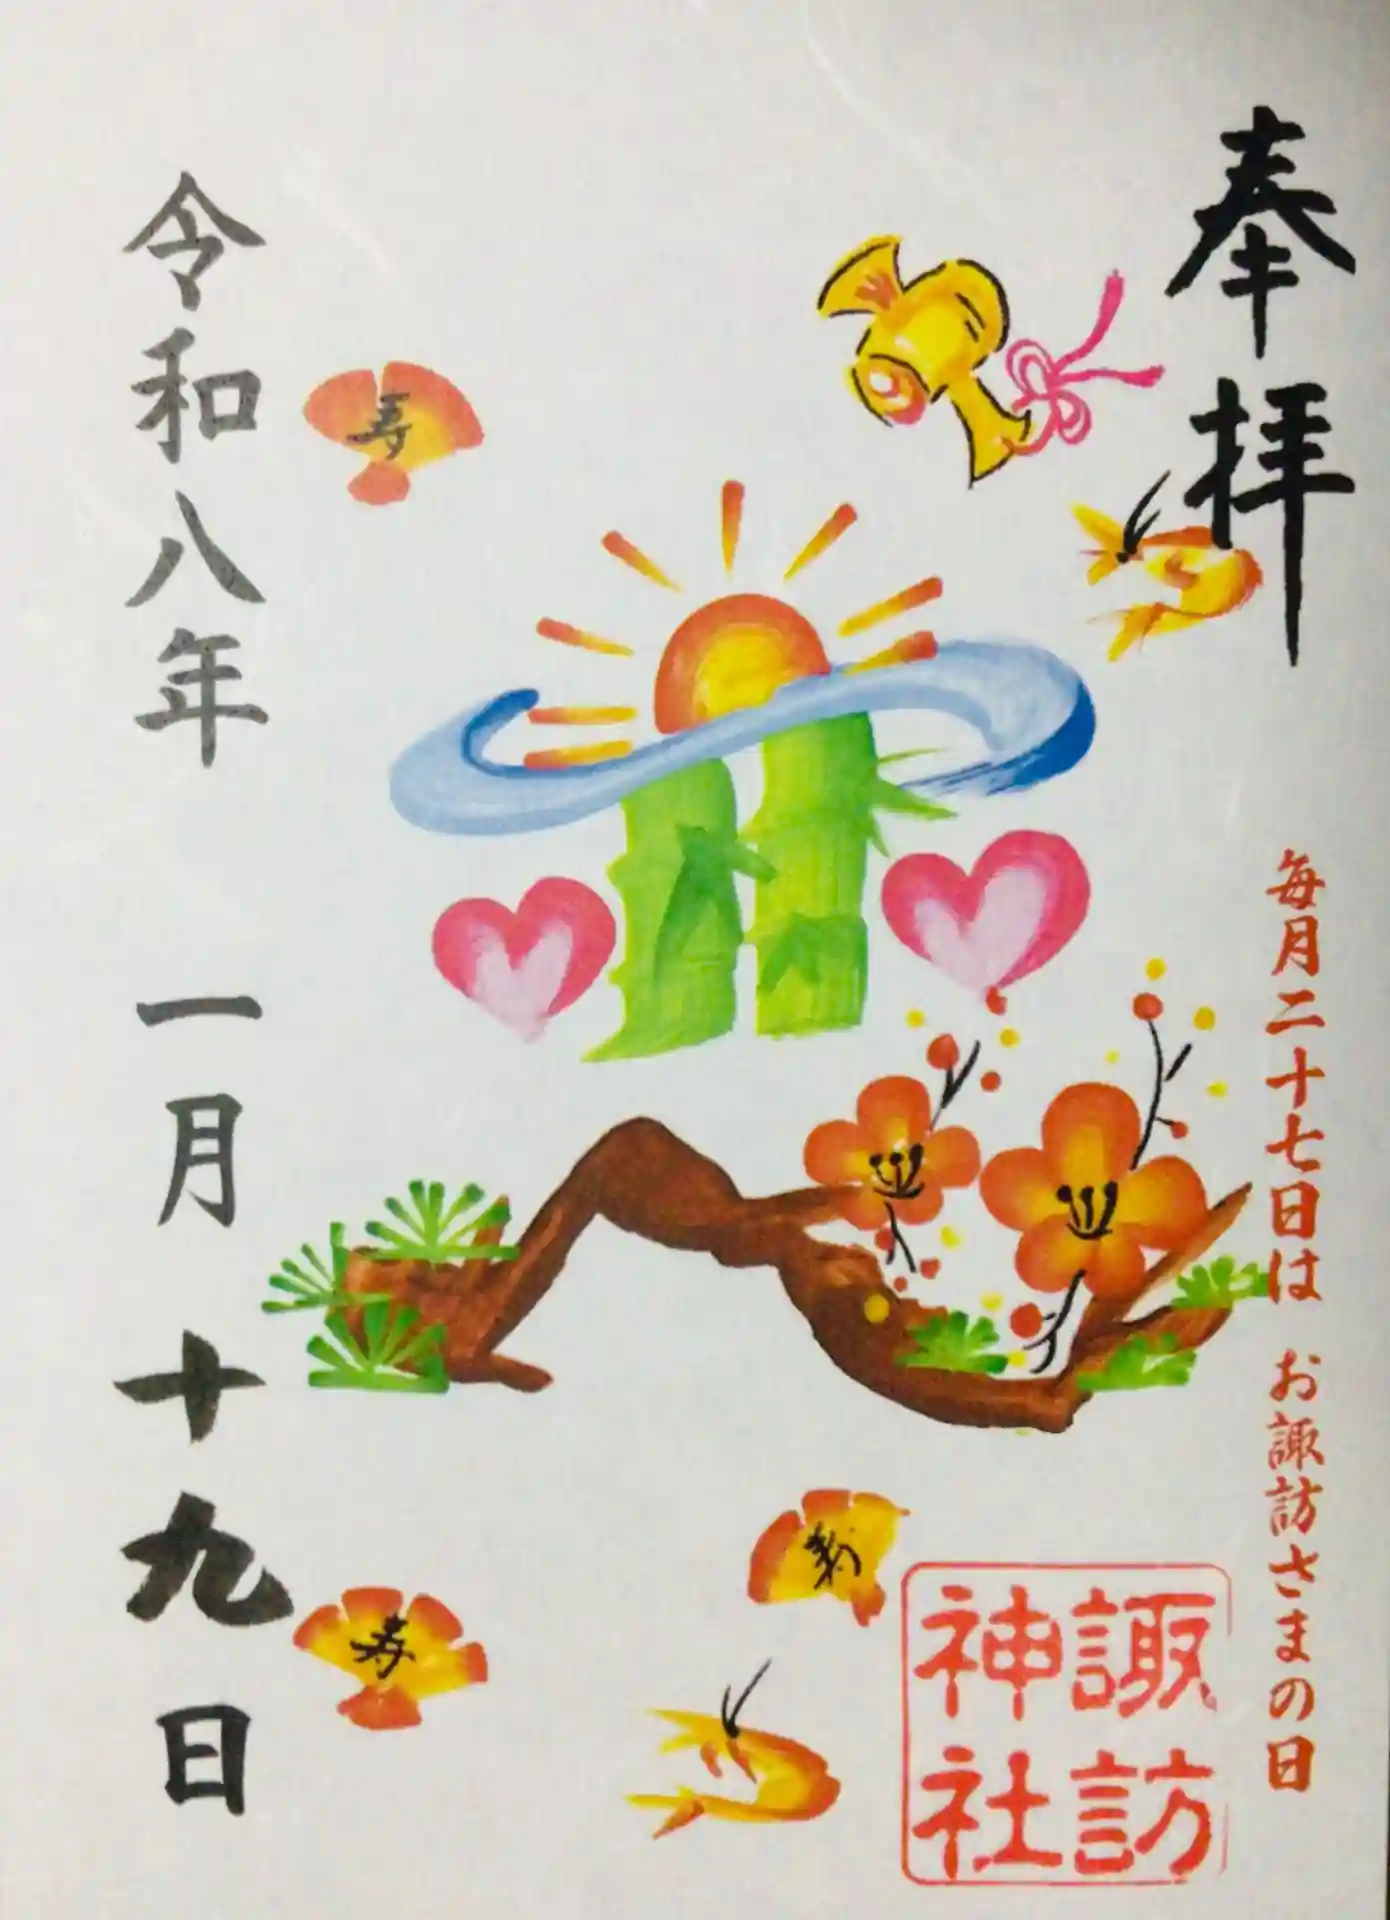 奉拝
毎月二十七日は お諏訪さまの日
諏訪
神社
寿
寿
寿
令和八年 一月十九日